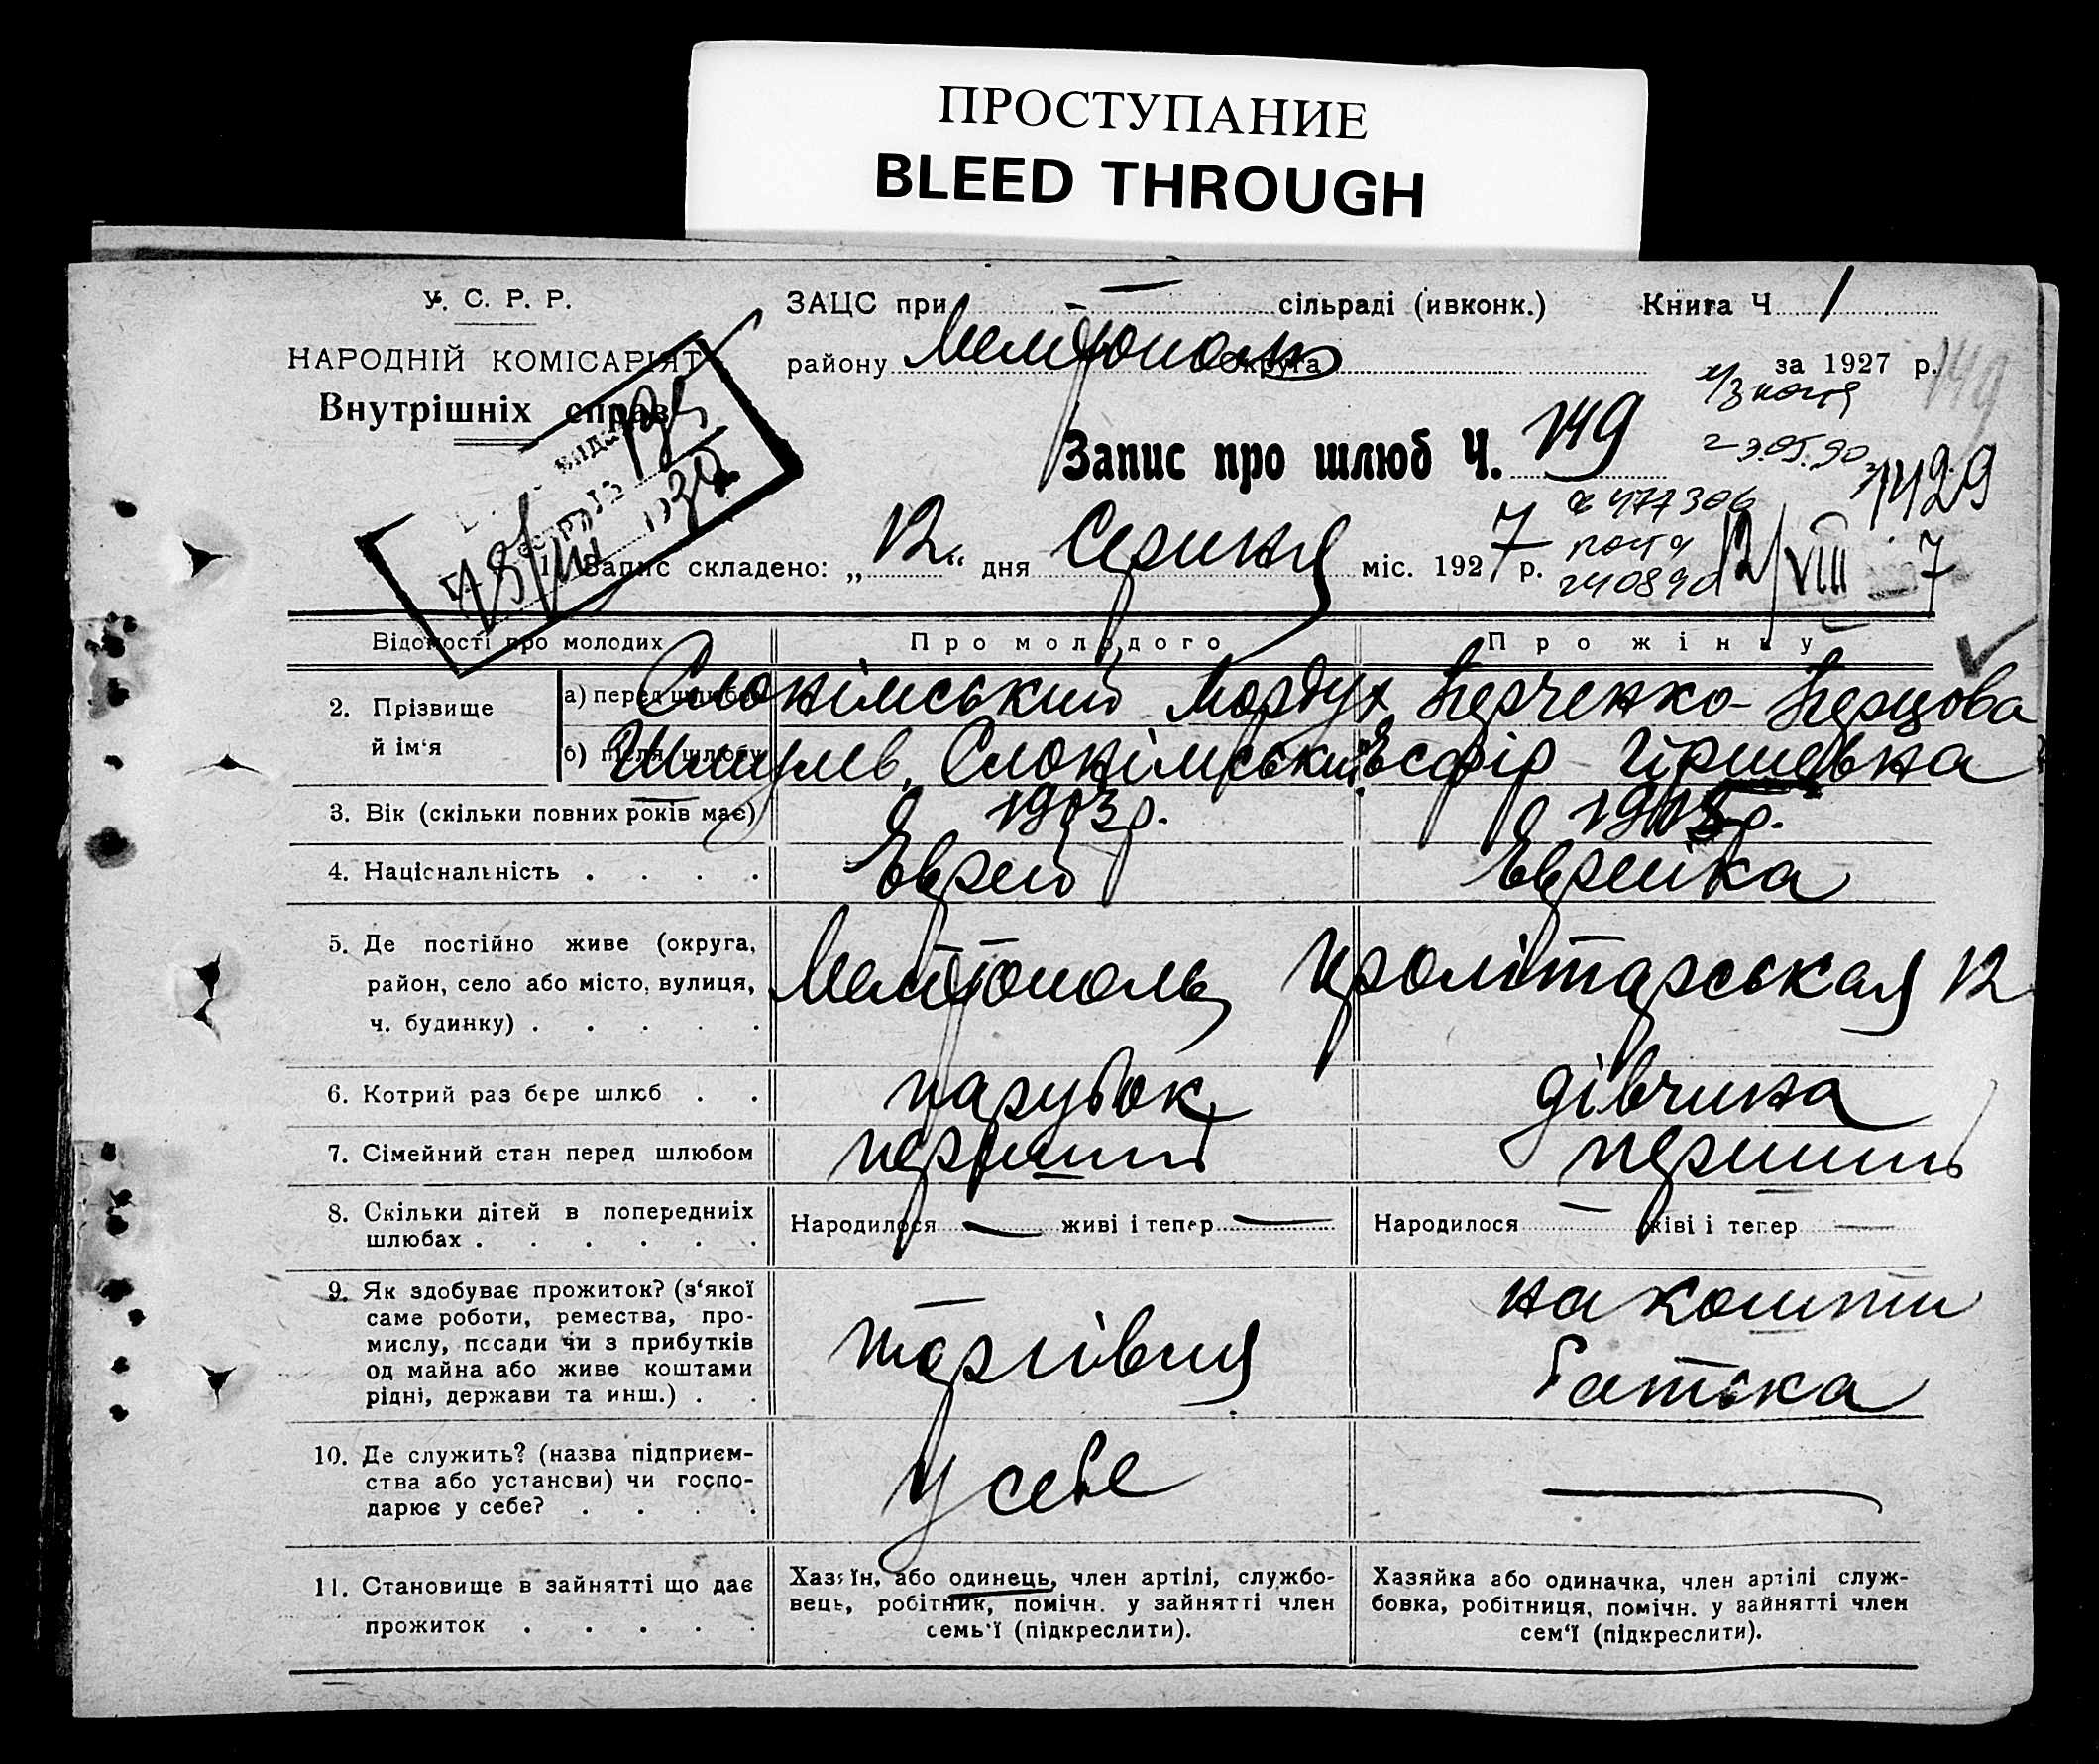 ПРОСТУПАНИЕ
BLEED THROUGH
У. С. Р. Р.
НАРОДНІЙ КОМІСАРІЯТ
Внутрішніх справ
ЗАЦС при — сільраді (ивконк.) Книга Ч. 1
району Мелітополь округа за 1927 р.
149
Запис про шлюб Ч. 149
23.05.90
1429
477306
240890
1. Запис складено: „12“ дня Серпня міс. 1927 р.
12/VIII 7
Відомості про молодих Про молодого Про жінку
2. Прізвище й ім‘я
а) перед шлюбом Слонімський Мордух Перченко-Перцова
б) після шлюбу Шмулев. Слонімський Есфір Гіршевна
3. Вік (скільки повних років має) 1903 р. 1905 р.
4. Національність Еврей Еврейка
5. Де постійно живе (округа,
район, село або місто, вулиця,
ч. будинку)
Мелітополь Пролітарськая 12
6. Котрий раз бере шлюб парубок дівчина
7. Сімейний стан перед шлюбом перший перший
8. Скільки дітей в попередніх
шлюбах
Народилося — живі і тепер — Народилося — живі і тепер —
9. Як здобуває прожиток? (з‘якої
саме роботи, ремества, про-
мислу, посади чи з прибутків
од майна або живе коштами
рідні, держави та инш.)
торгівля
на кошти
батька
10. Де служить? (назва підприєм-
ства або установи) чи госпо-
дарює у себе?
у себе —
11. Становище в зайнятті що дає
прожиток
Хазяїн, або одинець, член артілі, службо-
вець, робітник, помічн. у зайнятті член
семь‘ї (підкреслити).
Хазяйка або одиначка, член артілі служ-
бовка, робітниця, помічн. у зайнятті член
сем‘ї (підкреслити).